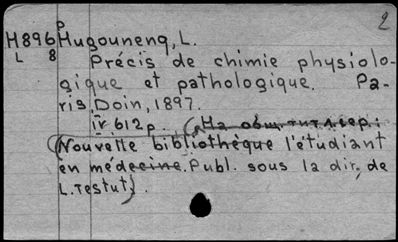 2
р
H896 Hugounenq, L.
L 8 Précis de chimie physiolo-
gique et pathologique. Pa-
ris, Doin, 1897.
IV 612 p. (На общ. тит. л. сер.:
Nouvelle bibliothèque l'étudiant
en médecine. Publ. sous la dir. de
L. Testut).